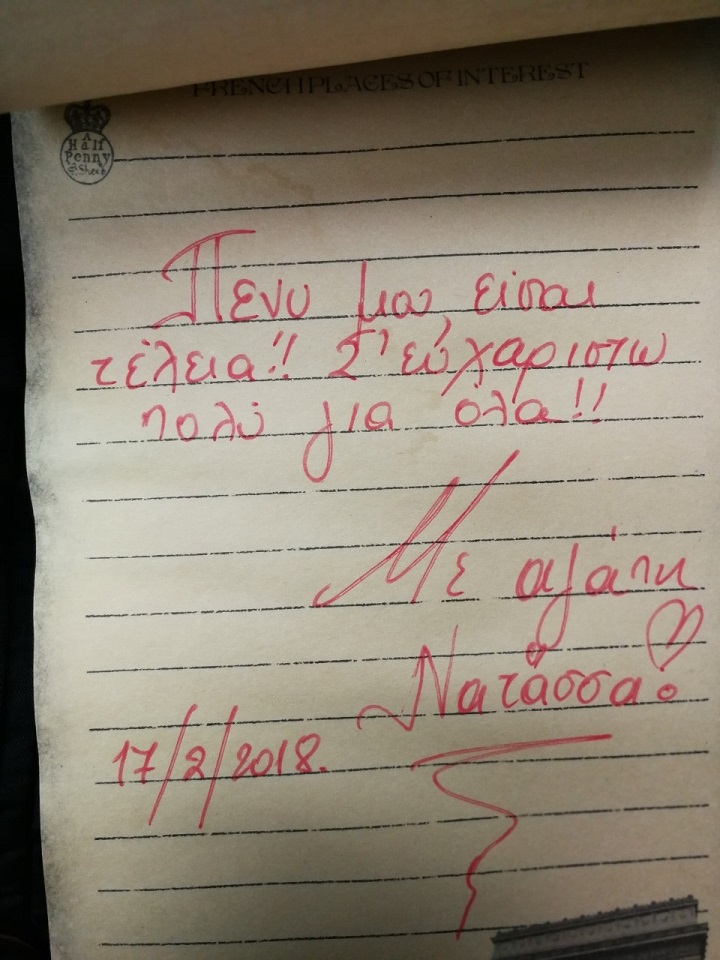 FRENCH PLACES OF INTEREST
A
Half
Penny
Sheet
Πενυ μου, είσαι
τέλεια!! Σ' ευχαριστω
πολύ για όλα!!
Με αγάπη
Νατάσσα
17/2/2018.